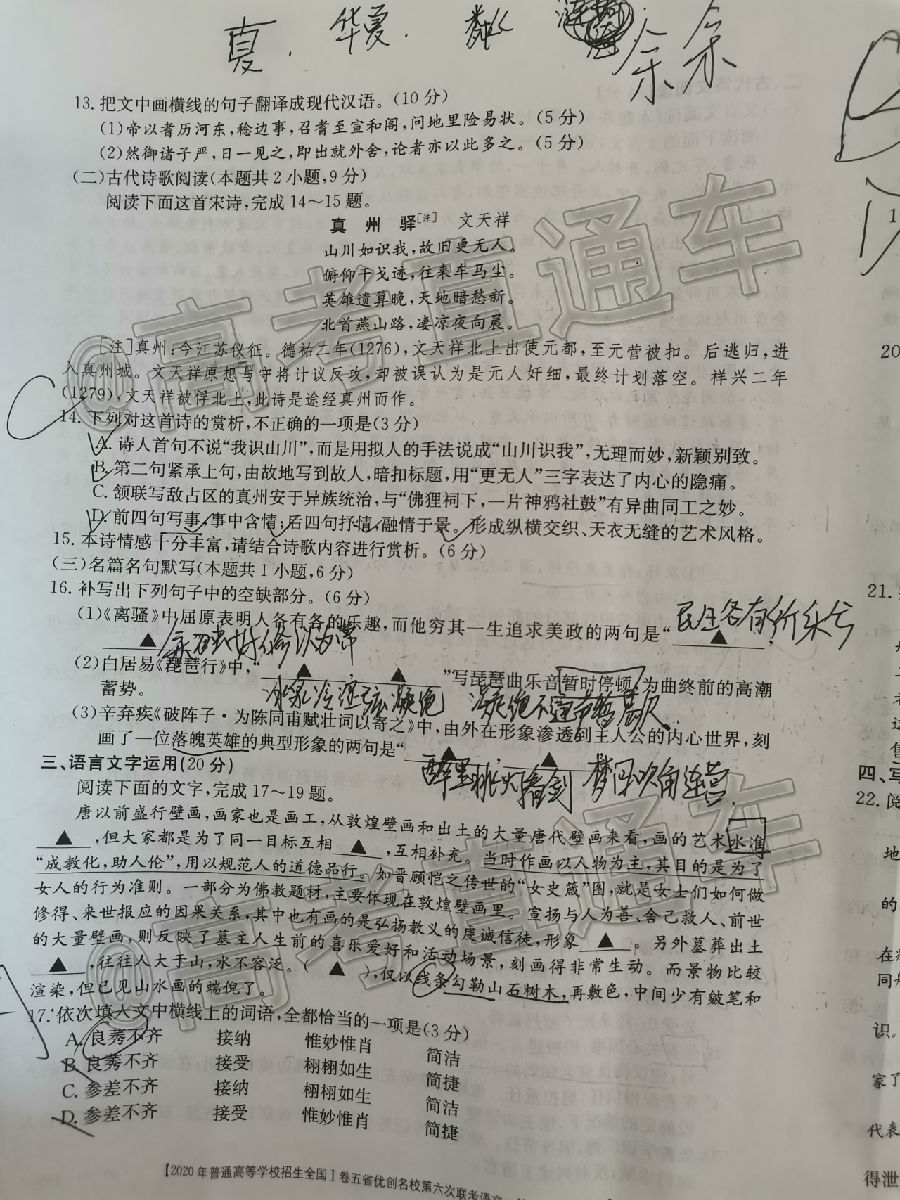 夏.华夏.
余余
13.把文中画横线的句子翻译成现代汉语。(10分)
(1)帝以者历河东,稔边事,召耆至宣和阁,问地里险易状。(5分)
(2)然御诸子严,日一见之,即出就外舍,论者亦以此多之。(5分)
(二)古代诗歌阅读(本题共2小题,9分)
阅读下面这首宋诗,完成14~15题。
真州驿[注] 文天祥
山川如识我,故旧更无人。
俯仰干戈迹,往来车马尘。
英雄遗算晚,天地暗愁新。
北首燕山路,凄凉夜向晨。
[注]真州:今江苏仪征。德祐二年(1276),文天祥北上出使元都,至元营被扣。后逃归,进
入真州城。文天祥原想与守将计议反攻,却被误认为是元人奸细,最终计划落空。祥兴二年
(1279),文天祥被俘北上,此诗是途经真州而作。
14.下列对这首诗的赏析,不正确的一项是(3分)
A.诗人首句不说“我识山川”,而是用拟人的手法说成“山川识我”,无理而妙,新颖别致。
B.第二句紧承上句,由故地写到故人,暗扣标题,用“更无人”三字表达了内心的隐痛。
C.颔联写敌占区的真州安于异族统治,与“佛狸祠下,一片神鸦社鼓”有异曲同工之妙。
D.前四句写事,事中含情;后四句抒情,融情于景。形成纵横交织、天衣无缝的艺术风格。
15.本诗情感十分丰富,请结合诗歌内容进行赏析。(6分)
(三)名篇名句默写(本题共1小题,6分)
16.补写出下列句子中的空缺部分。(6分)
(1)《离骚》中屈原表明人各有各的乐趣,而他穷其一生追求美政的两句是“ 民生各有所乐兮 ▲ ,
▲ 余独好修以为常
(2)白居易《琵琶行》中,“ ▲ , ▲ ”写琵琶曲乐音暂时停顿,为曲终前的高潮
蓄势。 冰泉冷涩弦凝绝 凝绝不通声暂歇
(3)辛弃疾《破阵子·为陈同甫赋壮词以寄之》中,由外在形象渗透到主人公的内心世界,刻
画了一位落魄英雄的典型形象的两句是“ ▲ , ▲
醉里挑灯看剑 梦回吹角连营
三、语言文字运用(20分)
阅读下面的文字,完成17~19题。
唐以前盛行壁画,画家也是画工,从敦煌壁画和出土的大量唐代壁画来看,画的艺术水准
▲ ,但大家都是为了同一目标互相 ▲ ,互相补充。当时作画以人物为主,其目的是为了
“成教化,助人伦”,用以规范人的道德品行。如晋顾恺之传世的“女史箴”图,就是女士们如何做
女人的行为准则。一部分为佛教题材,主要体现在敦煌壁画里。宣扬与人为善、舍己救人、前世
修得、来世报应的因果关系,其中也有画的是弘扬教义的虔诚信徒,形象 ▲ 。另外墓葬出土
的大量壁画,则反映了墓主人生前的喜乐爱好和活动场景,刻画得非常生动。而景物比较
▲ ,往往人大于山,水不容泛。( ▲ ),仅以线条勾勒山石树木,再敷色,中间少有皴笔和
渲染,但已见山水画的端倪了。
17.依次填入文中横线上的词语,全都恰当的一项是(3分)
A.良莠不齐 接纳 惟妙惟肖 简洁
B.良莠不齐 接受 栩栩如生 简捷
C.参差不齐 接纳 栩栩如生 简洁
D.参差不齐 接受 惟妙惟肖 简捷
【2020年普通高等学校招生全国Ⅰ卷五省优创名校第六次联考语文
@高考直通车
@高考直通车
20
21.
四、写
22.阅
地
的
在
同
识。
家了
代表
得泄